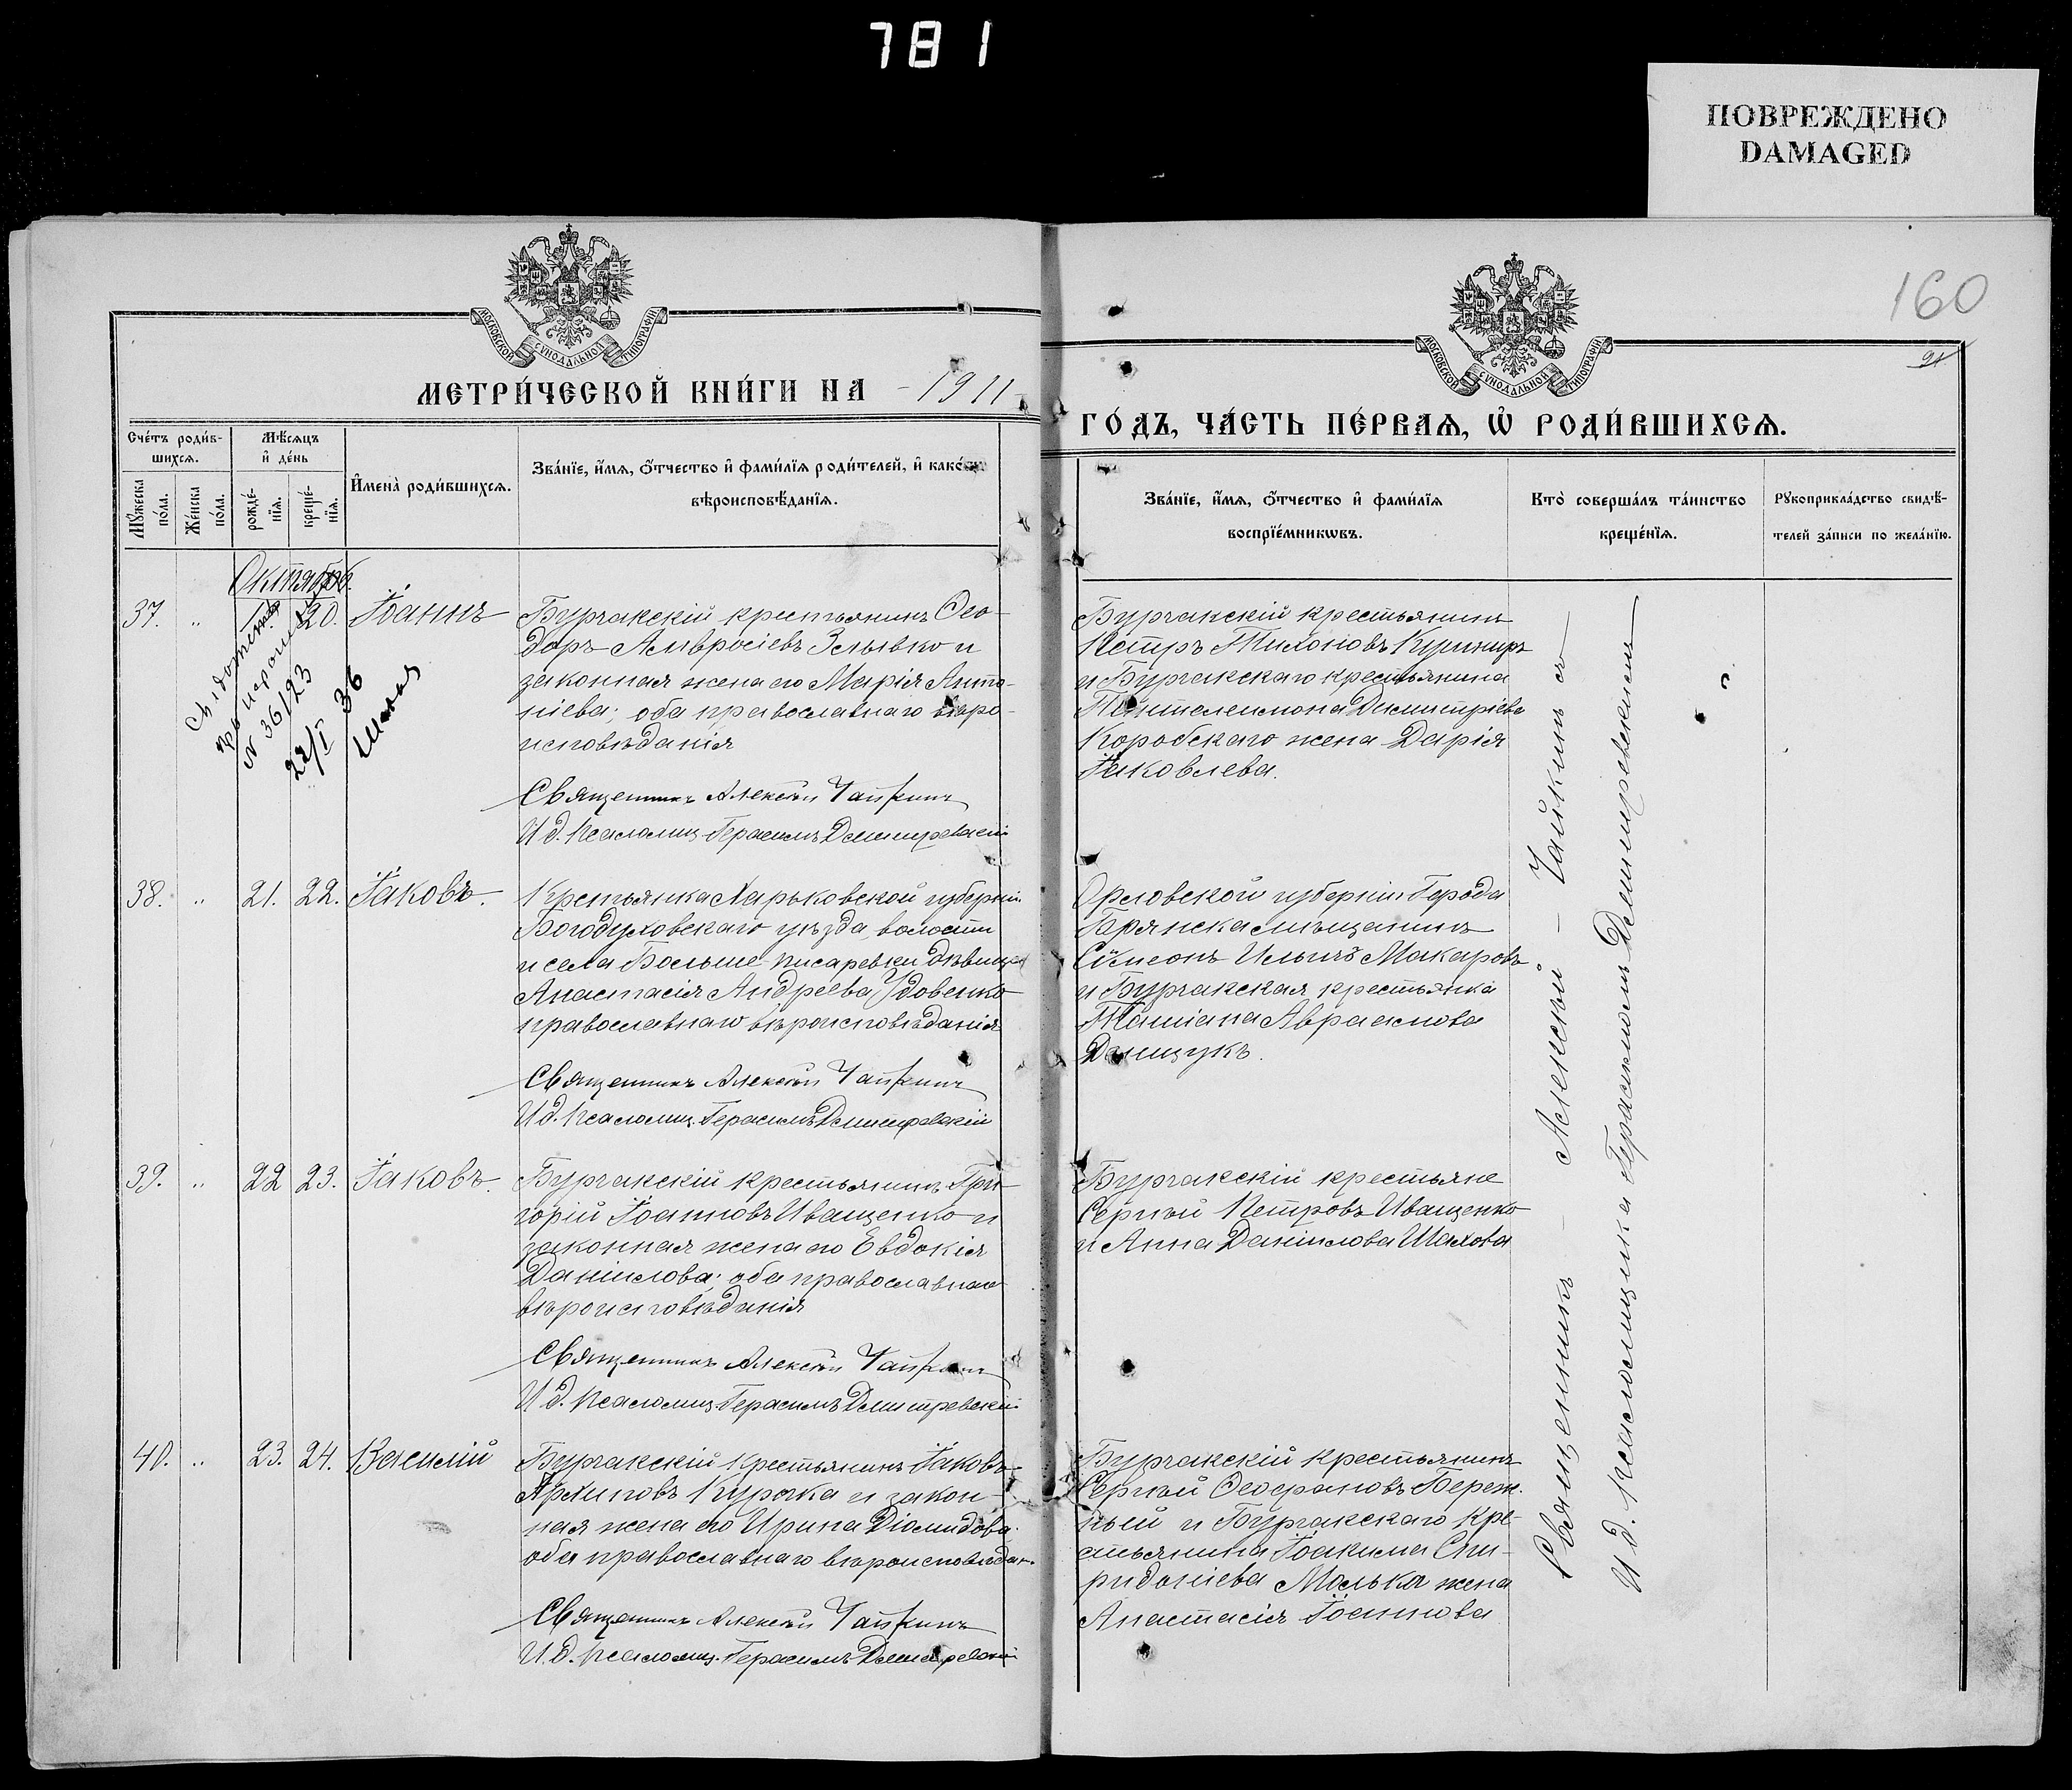 781
ПОВРЕЖДЕНО
DAMAGED
160
21
МОСКОВСКОЙ СѴНОДАЛЬНОЙ ТИПОГРАФІИ
МОСКОВСКОЙ СѴНОДАЛЬНОЙ ТИПОГРАФІИ
МЕТРИ́ЧЕСКОЙ КНИ́ГИ НА 1911
ГО́ДЪ, ЧА́СТЬ ПЕ́РВАѦ, Ѡ҆ РОДИ́ВШИХСѦ.
Сче́тъ роди́в-
шихсѧ.
Мѣ́сѧцъ
и҆ де́нь
И҆мена̀ роди́вшихсѧ.
Зва́нїе, и҆́мѧ, ѻ҆́тчество и҆ фами́лїѧ роди́телей, и҆ како́гѡ
вѣроисповѣ́данїѧ.
Мꙋ́жеска
по́ла.
Же́нска
по́ла.
рожде́-
нїѧ.
креще́-
нїѧ.
Зва́нїе, и҆́мѧ, ѻ҆́тчество и҆ фами́лїѧ
воспрїе́мникѡвъ.
Кто̀ соверша́лъ та́инство
креще́нїѧ.
Рꙋкоприкла́дство свидѣ́-
телей за́писи по жела́нїю.
Октябрь.
37. " 1. 20. Іоаннъ
Бурчакскій крестьянинъ Ѳео-
доръ Амвросіевъ Зливко и
законная жена его Марія Анто-
ніева; оба православнаго вѣро-
исповѣданія
№ 36/23
22/I 36
Священникъ Алексѣй Чайкинъ
И д. Псаломщ. Герасимъ Дмитревскій
Бурчакскій крестьянинъ
Петръ Тихоновъ Кушниръ
и Бурчакскаго крестьянина
Пантелеимона Димитріева
Коробскаго жена Дарія
Іаковлева.
38. " 21. 22. Іаковъ.
Крестьянка Харьковской губерніи
Богодуховскаго уѣзда, волости
и села Больше-Писаревки дѣвица
Анастасія Андреева Удовенко
православнаго вѣроисповѣданія
Священникъ Алексѣй Чайкинъ
И д. Псаломщ. Герасимъ Дмитревскій
Орловской губерніи Города
Брянска мѣщанинъ
Сѵмеонъ Ильичъ Макаровъ
и Бурчакская крестьянка
Татіана Авраамова
Данищукъ.
39. " 22 23. Іаковъ.
Бурчакскій крестьянинъ Гри-
горій Іоанновъ Иващенко и
законная жена его Евдокія
Даніилова; оба православнаго
вѣроисповѣданія
Священникъ Алексѣй Чайкинъ
И д. Псаломщ. Герасимъ Дмитревскій
Бурчакскій крестьяне
Сергѣй Петровъ Иващенко
и Анна Даніилова Шахова
40. " 23. 24. Василій
Бурчакскій крестьянинъ Іаковъ
Архиповъ Курочка и закон-
ная жена его Ирина Діомидова
оба православнаго вѣроисповѣдан.
Священникъ Алексѣй Чайкинъ
И. д. Псаломщ. Герасимъ Дмитревскій
Бурчакскій крестьянинъ
Сергѣй Ѳеофановъ Береж-
ный и Бурчакскаго кре-
стьянина Іоакима Спи-
ридоніева Молька жена
Анастасія Іоаннова
Священникъ – Алексѣй – Чайкинъ съ
И д. Псаломщика Герасимомъ Дмитревскимъ